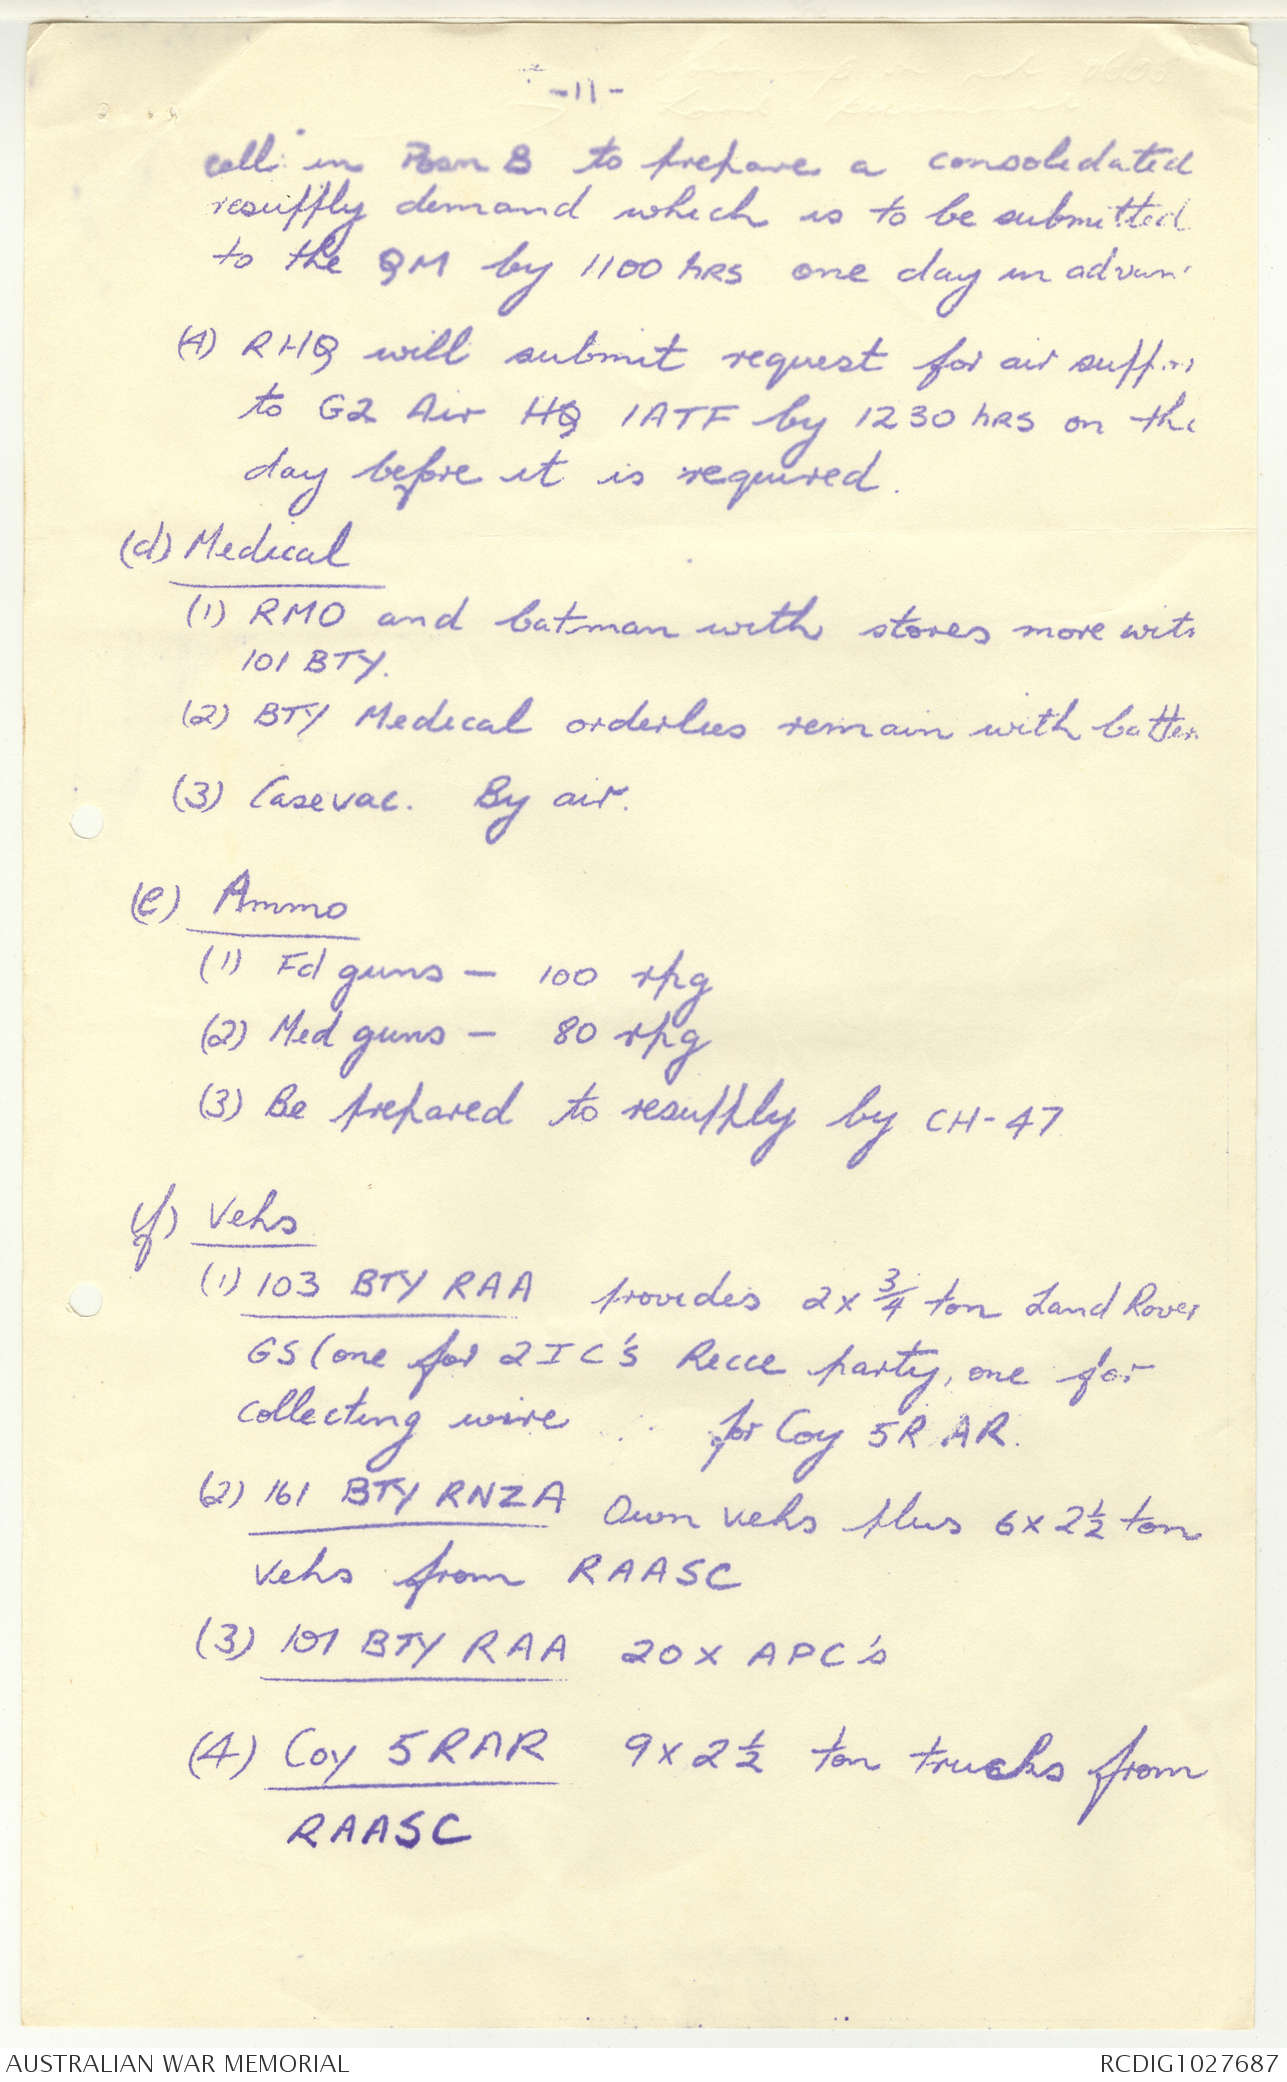 -11-
cell in Posn B to prepare a consolidated
resupply demand which is to be submitted
to the QM by 1100 hrs one day in advan
(4) RHQ will submit request for air supp
to G2 Air HQ 1ATF by 1230 hrs on the
day before it is required.
(d) Medical
(1) RMO and batman with stores move with
101 BTY.
(2) BTY Medical orderlies remain with batter
(3) Casevac. By air.
(e) Ammo
(1) Fd guns - 100 rpg
(2) Med guns - 80 rpg
(3) Be prepared to resupply by CH-47
(f) Vehs
(1) 103 BTY RAA provides 2x 3/4 ton Land Rover
GS (one for 2IC's Recce party, one for
collecting wire for Coy 5RAR.
(2) 161 BTY RNZA Own vehs plus 6x 2½ ton
vehs from RAASC
(3) 101 BTY RAA 20x APC's
(4) Coy 5RAR 9x 2½ ton trucks from
RAASC
AUSTRALIAN WAR MEMORIAL
RCDIG1027687